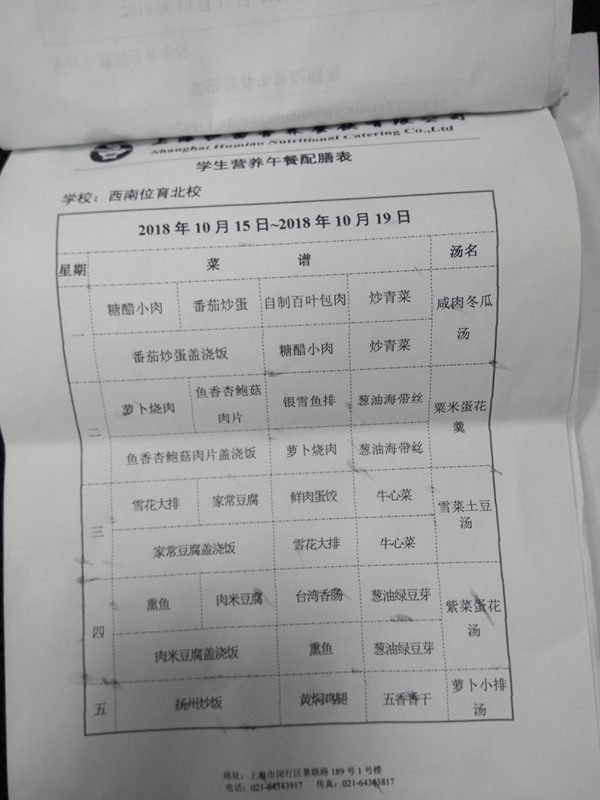 Shanghai Humiao Nutritional Catering Co.,Ltd
学生营养午餐配膳表
学校：西南位育北校
2018 年 10 月 15 日~2018 年 10 月 19 日
星期 菜 谱 汤名
一 糖醋小肉 番茄炒蛋 自制百叶包肉 炒青菜 咸肉冬瓜汤
番茄炒蛋盖浇饭 糖醋小肉 炒青菜
二 萝卜烧肉 鱼香杏鲍菇肉片 银雪鱼排 葱油海带丝 粟米蛋花羹
鱼香杏鲍菇肉片盖浇饭 萝卜烧肉 葱油海带丝
三 雪花大排 家常豆腐 鲜肉蛋饺 牛心菜 雪菜土豆汤
家常豆腐盖浇饭 雪花大排 牛心菜
四 熏鱼 肉米豆腐 台湾香肠 葱油绿豆芽 紫菜蛋花汤
肉米豆腐盖浇饭 熏鱼 葱油绿豆芽
五 扬州炒饭 黄焖鸡腿 五香香干 萝卜小排汤
地址：上海市闵行区景联路 189 号 1 号楼
电话：021-64543917 传真：021-64343817